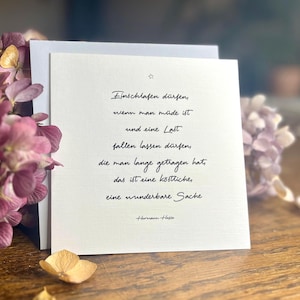 Einschlafen dürfen,
wenn man müde ist
und eine Last
fallen lassen dürfen,
die man lange getragen hat,
das ist eine köstliche,
eine wunderbare Sache
Hermann Hesse